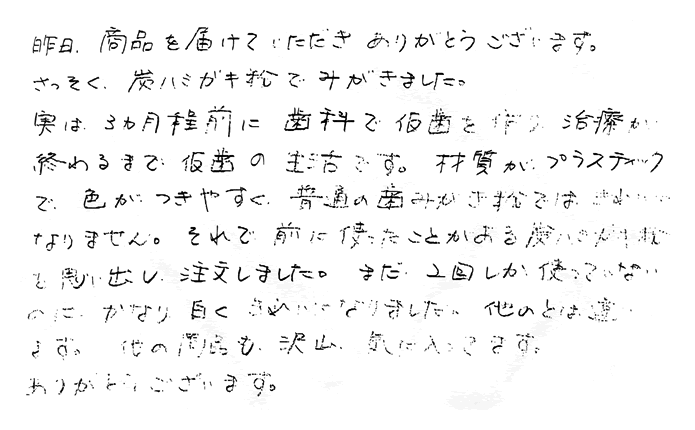 昨日、商品を届けていただきありがとうございます。
さっそく、炭ハミガキ粉でみがきました。
実は、3ヵ月程前に歯科で仮歯を作り、治療が
終わるまで仮歯の生活です。材質が、プラスティック
で、色がつきやすく、普通の歯みがき粉ではきれいに
なりません。それで前に使ったことがある炭ハミガキ粉
を思い出し、注文しました。まだ、2回しか使っていない
のに、かなり白くきれいになりました。他のとは違い
ます。他の商品も、沢山、気に入ってます。
ありがとうございます。